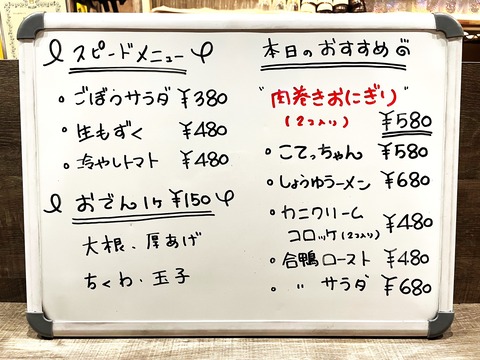 スピードメニュー
・ごぼうサラダ ¥380
・生もずく ¥480
・冷やしトマト ¥480
おでん1ヶ ¥150
大根、厚あげ
ちくわ、玉子
本日のおすすめ
"肉巻きおにぎり"
(2コ入り) ¥580
・こてっちゃん ¥580
・しょうゆラーメン ¥680
・カニクリーム
コロッケ(2コ入り) ¥480
・合鴨ロースト ¥480
・〃 サラダ ¥680